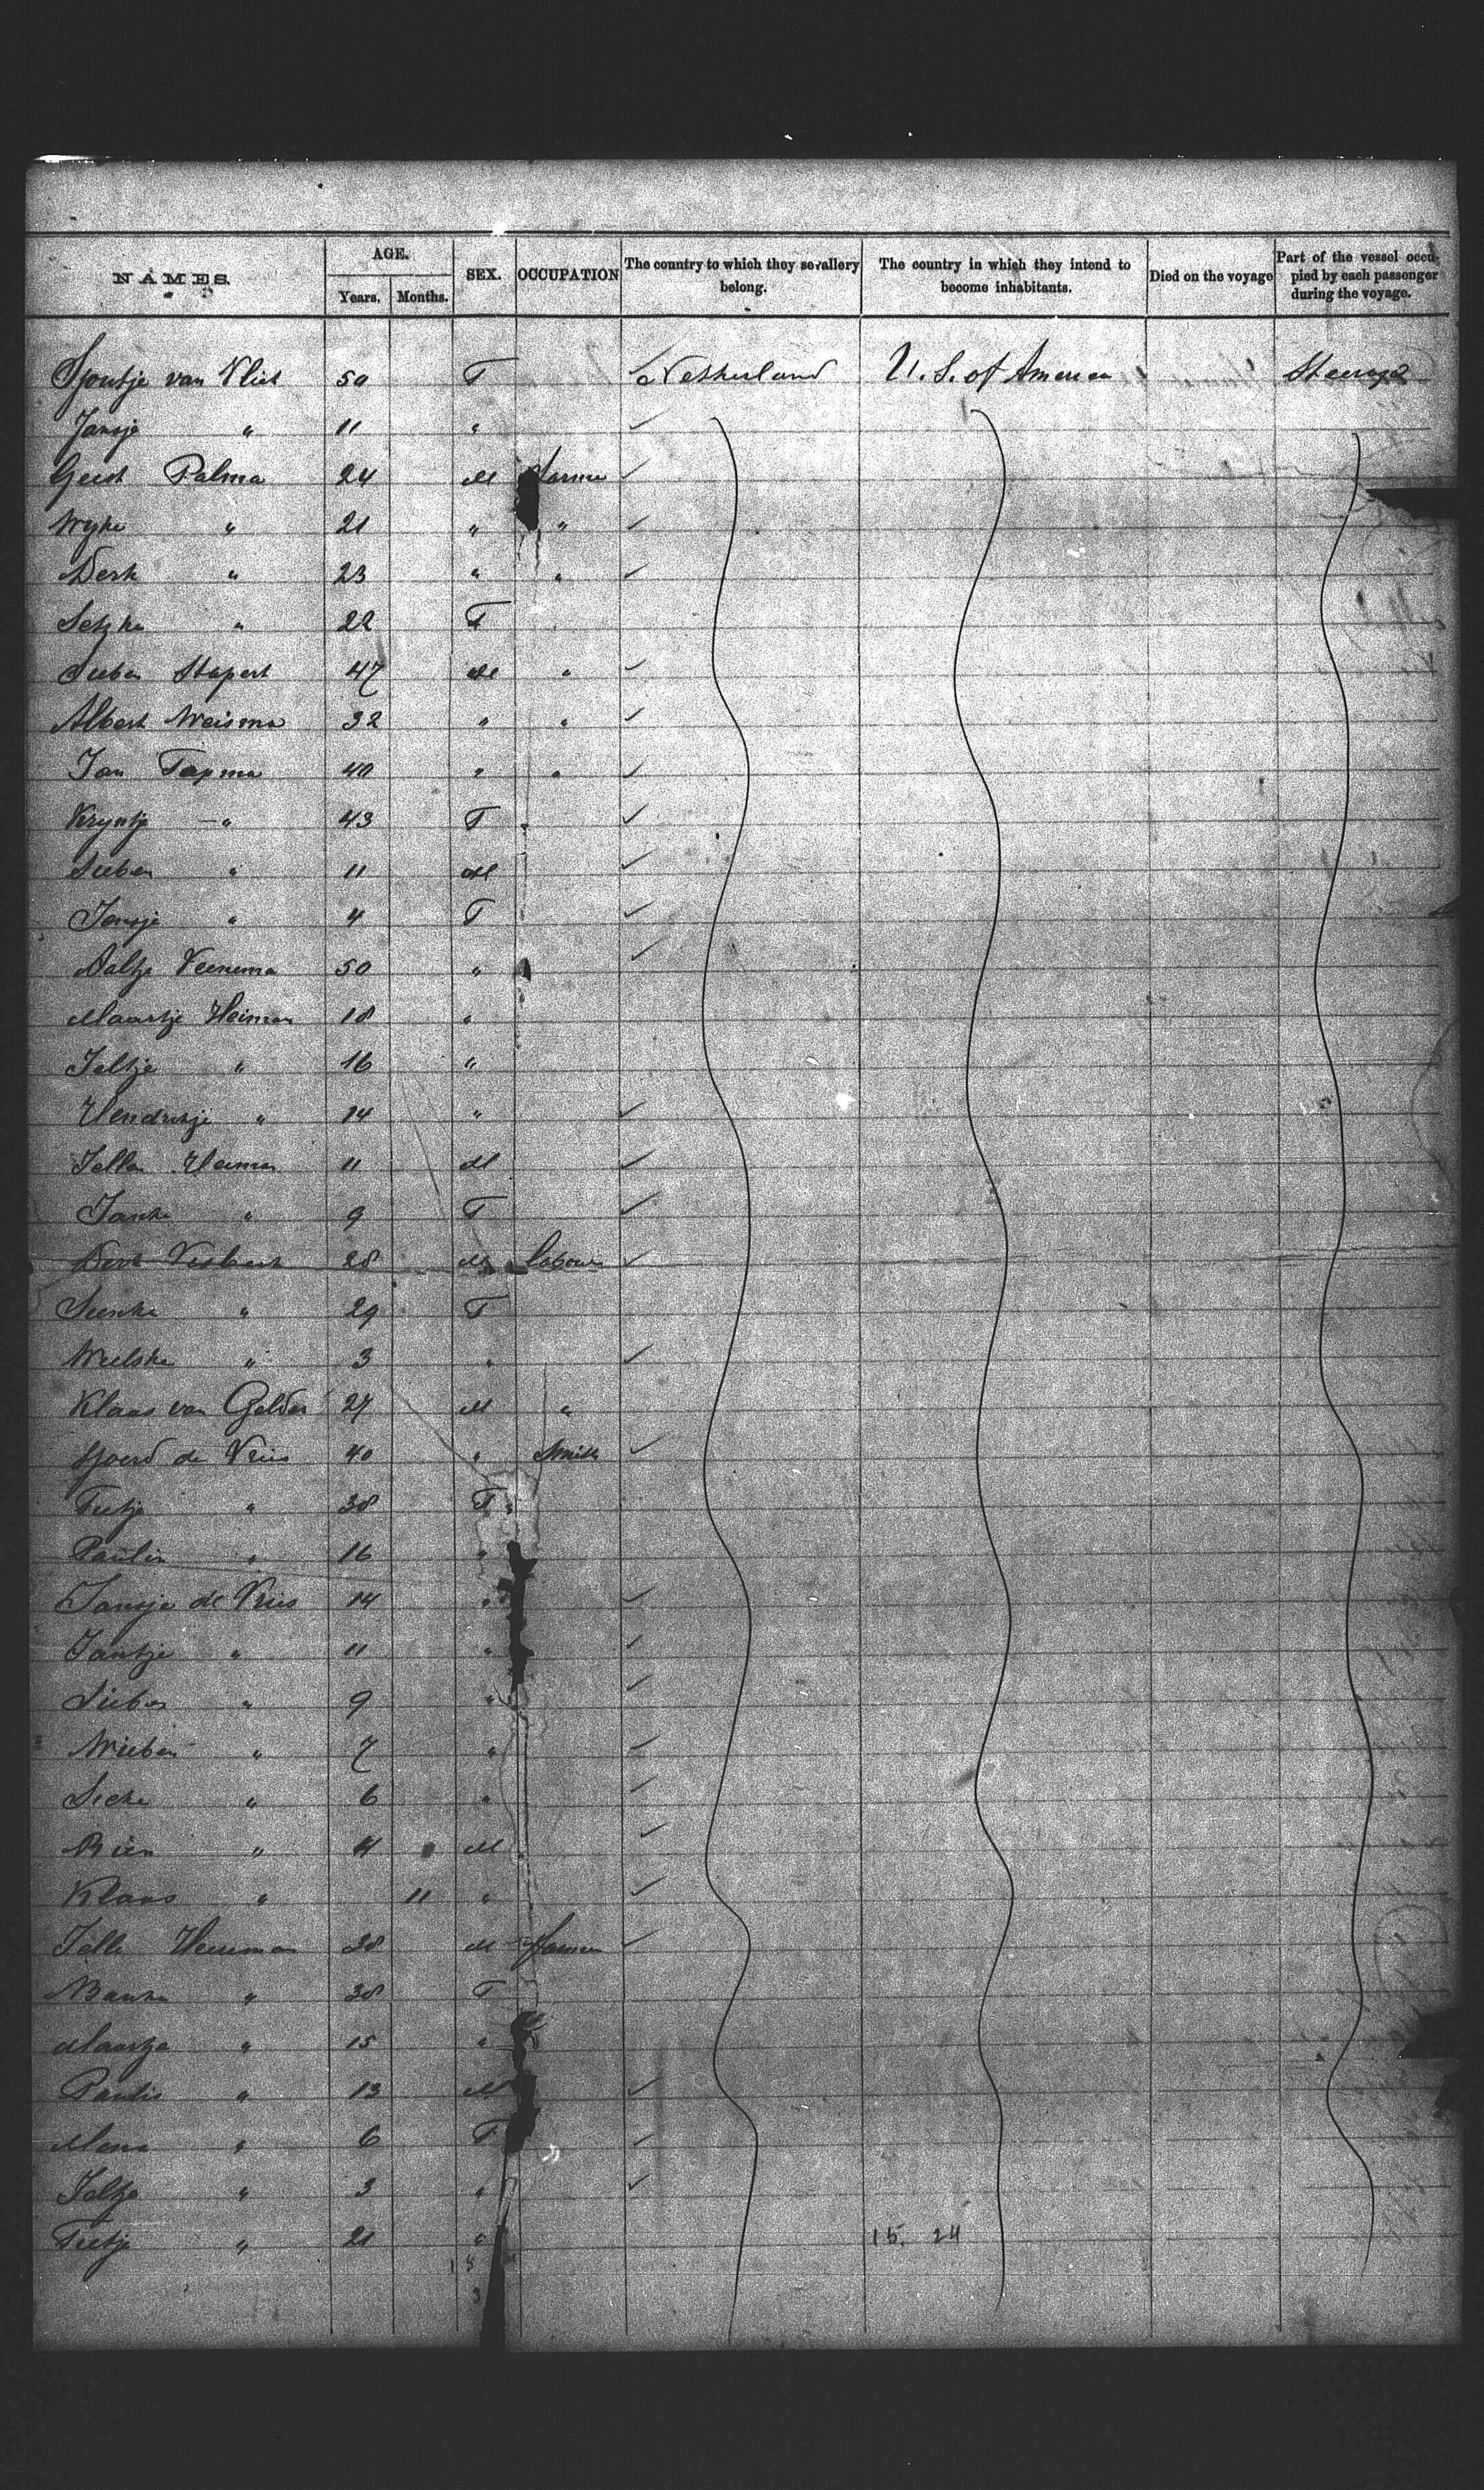 NAMES.
AGE.
Years. Months.
SEX.
OCCUPATION
The country to which they sevallery belong.
The country in which they intend to become inhabitants.
Died on the voyage
Part of the vessel occupied by each passenger during the voyage.
Sjoutje van Vliet 50 F Netherland U. S. of America Steerage
Jansje " 11 "
Geert Palma 24 M Farmer
Wyke " 21 " "
Derk " 23 " "
Setzke " 22 F
Sieben Stapert 47 M "
Albert Weisma 32 " "
Jan Tapma 40 " "
Kryntje " 43 F
Sieben " 11 M
Jansje " 4 F
Aaltje Veenema 50 "
Maartje Heiman 18 "
Jeltje " 16 "
Hendrikje " 14 "
Jelle Heiman 11 M
Janke " 9 F
Derk 28 M Labour
Sienke " 29 F
Weelske " 3 "
Klaas van Gelder 27 M "
Sjoerd de Vries 40 " Smith
Tietje " 38 F
Paulin " 16 "
Jansje de Vries 14 "
Jantje " 11 "
Sieben " 9 "
Wieben " 7 "
Sicke " 6 "
Rien " 4 M
Klaas " 11 "
Jelle Heeman 38 M Farmer
Bauke " 38 F
Maartje " 15 "
Paulis " 13 M
Mena " 6 F
Jeltje " 3 "
Tietje " 21 " 15. 24
15
3